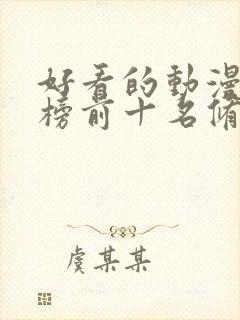 好看的動漫
榜前十名脩
虞某某